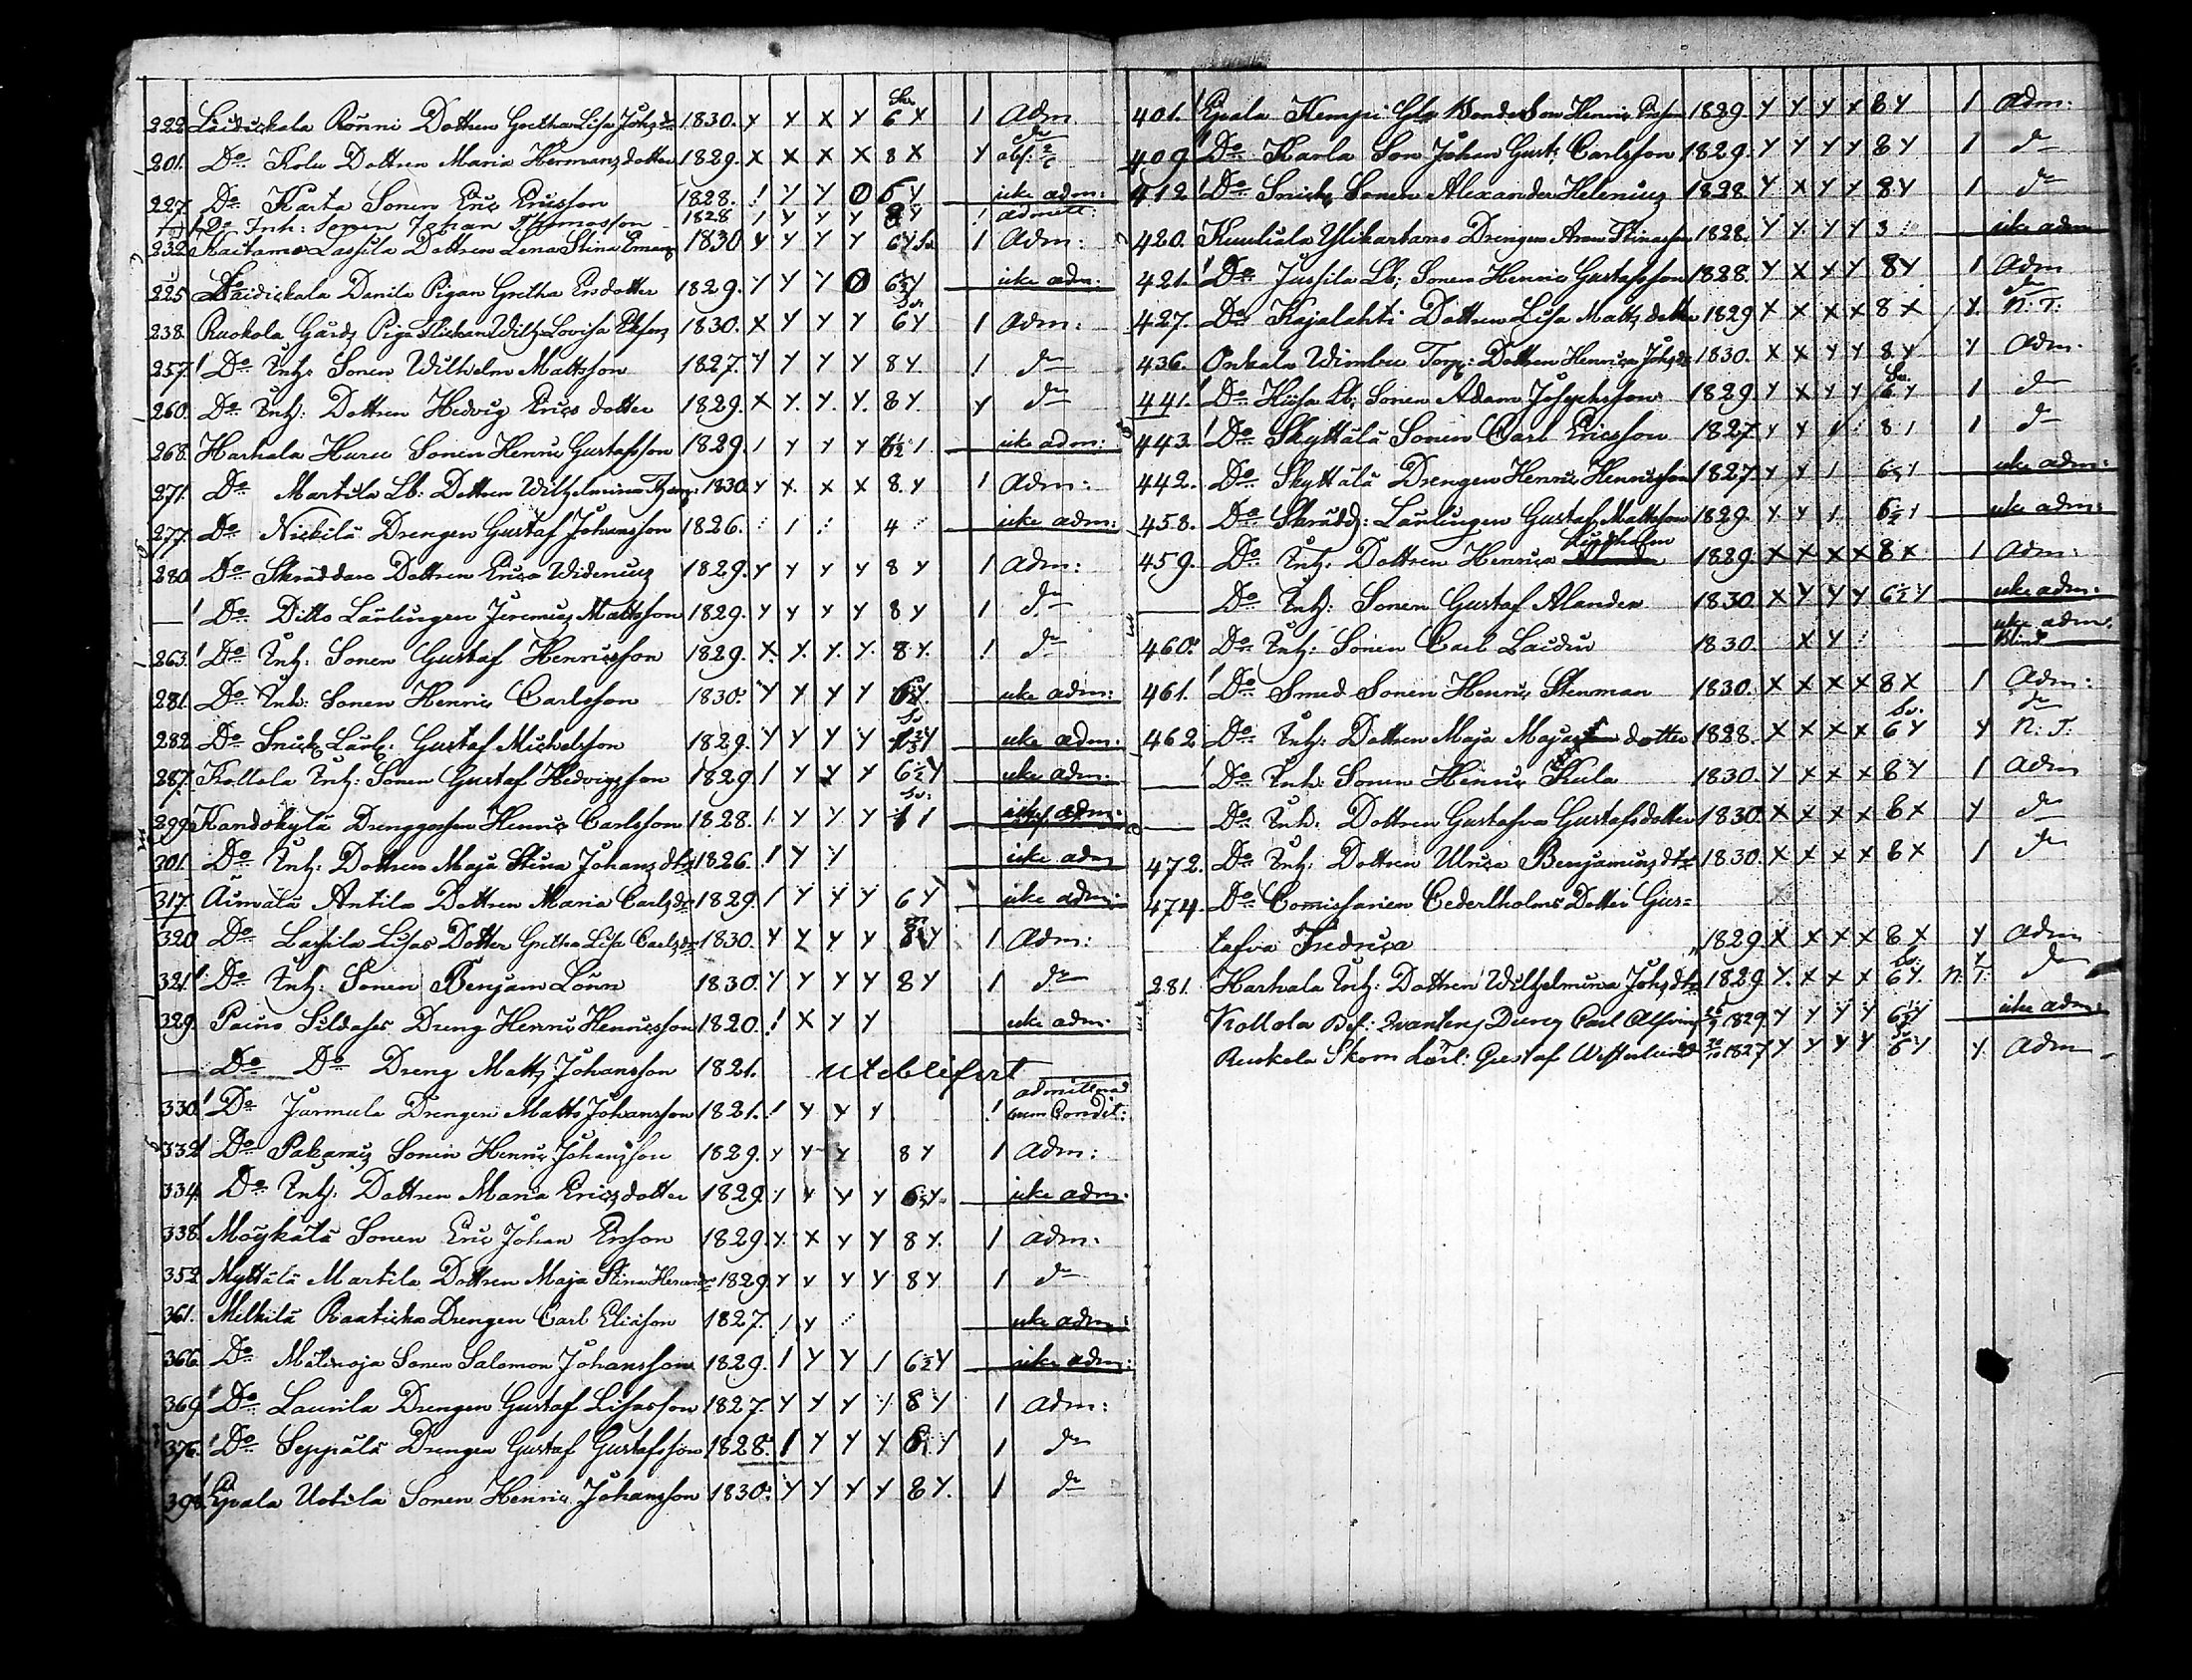 222. Laidickala Rönni Dottren Gretha Lisa Johsdr 1830. Y Y X Y 6 Y 1 Adm
201. Do Kolu Dottren Maria Hermansdotter 1829. X X X X 8 X Y
227. Do Karta Sonen Eric Ericsson 1828. 1 Y Y O 6 Y icke adm:
Do Inh: Sonen Johan Thomasson 1828 1 Y Y Y 8 Y 1 admitt:
232 Raitamo Lassila Dottren Lena Stina 1830 Y Y Y Y 6 Y 1 Adm:
225 Laidickala Danila Pigan Gretha Ersdotter 1829. Y Y Y O 6½ Y icke adm:
238. Ruokola Gårds Piga Flickan Lovisa 1830. X Y Y Y 6 Y 1 Adm:
257. Do Inh: Sonen Wilhelm Mattsson 1827. Y Y Y Y 8 Y 1 do
260. Do Inh: Dottren Hedvig Erics dotter 1829. X Y. Y. Y. 8 Y. Y do
268. Harhala Huru Sonen Henric Gustafsson 1829. 1 Y Y Y 6½ 1 icke adm:
271. Do Martila Lb: Dottren Wilhelmina 1830. Y X. X X 8. Y 1 Adm:
277. Do Nickilä Drengen Gustaf Johansson 1826. 1 4 icke adm:
280 Do Skräddare Dottren Erica Widenius 1829. Y Y Y Y 8 Y 1 Adm:
Do Ditto Lärlingen Jeremias Mattsson 1829. Y Y Y Y 8 Y 1 do
263. Do Inh: Sonen Gustaf Henricsson 1829. X. Y. Y. Y. 8 Y. 1 do
281. Do Inh: Sonen Henric Carlsson 1830. Y Y Y Y 6½ Y. icke adm:
282 Do Snick: Lärl: Gustaf Michelsson 1829. Y Y Y Y icke adm:
287. Kollola Inh: Sonen Gustaf Hedvigsson 1829. 1 Y Y Y 6½ Y icke adm:
299. Kandokylä Drenggossen Henric Carlsson 1828. 1 Y Y Y icke adm:
301. Do Inh: Dottren Maja Stina Johans dtr 1826. 1 Y Y icke adm
317. Äimälä Antila Dottren Maria Carlsdr 1829. 1 Y Y Y 6 Y icke adm:
320. Do Lassila Lisas Dotter Gretha Lisa Carlsdr 1830. Y Y Y Y 8 Y 1 Adm:
321. Do Inh: Sonen Benjam Lönn 1830. Y Y Y Y 8 Y 1 do
329. Paino Sildafas Dreng Henric Henricsson 1820. 1 X Y Y icke adm:
Do Do Dreng Matts Johansson 1821. uteblifvit
330. Do Jarmula Drengen Matts Johansson 1821. 1 Y Y Y 1 admitterad cum Condit:
332. Do Pakarais Sonen Henric Johansson 1829. Y Y Y 8 Y 1 Adm:
334. Do Inh: Dottren Maria Ericsdotter 1829. Y Y Y Y 6½ Y. icke adm.
338. Möykälä Sonen Eric Johan Ersson 1829. Y. X Y Y 8 Y. 1 Adm:
352. Myttälä Martila Dottren Maja Stina 1829. Y Y Y Y 8 Y 1 do
361. Melkilä Raaticka Drengen Carl Eliasson 1827. 1 Y icke adm:
366. Do Mälinoja Sonen Salomon Johansson 1829. 1 Y Y 1 6½ Y icke adm:
369. Do Laurila Drengen Gustaf Lisasson 1827. Y Y Y Y 8 Y 1 Adm:
376. Do Seppälä Drengen Gustaf Gustafsson 1828. 1 Y Y Y 8 Y 1 do
398. Epala Uotila Sonen Henric Johansson 1830. Y Y Y Y 8 Y. 1 do
401. Epala Kempi Bonde Son Henric 1829. Y Y Y X 8 Y 1 Adm:
409 Do Karla Son Johan Gust: Carlsson 1829. Y Y Y Y 8 Y 1 do
412 Do Snick: Sonen Alexander Helenius 1828. Y. X Y Y 8 Y 1 do
420. Kuuliala Ylikartano Drengen Aron Stinasson 1828. Y Y. Y Y 3 icke adm
421. Do Jussila Lb: Sonen Henric Gustafsson 1828. Y X X Y 8 Y 1 Adm
427. Do Kajalahti Dottren Lisa Matts dotter 1829 X X X X 8 X Y. do N: T:
436. Onkala Wimbu Torp: Dottren Henrica Johsdr 1830. X X Y Y 8 Y Y Adm.
441. Do Hiisa Lb: Sonen Adam Josephsson 1829. Y X Y Y 6 Y 1 do
443. Do Skyttälä Sonen Carl Ericsson 1827. Y Y 1 8 1 1 do
442. Do Skyttälä Drengen Henric Henricsson 1827. Y Y 1 6½ Y icke adm:
458. Do Skrädd: Lärlingen Gustaf Mattsson 1829. Y Y 1 6½ Y icke adm:
459. Do Inh: Dottren Henrica Lindholm 1829. X X X X 8 X 1 Adm:
Do Inh: Sonen Gustaf Alander 1830. X Y Y Y 6½ Y icke adm:
460. Do Inh: Sonen Carl Laidu 1830. X Y icke adm. Blind
461. Do Smed Sonen Henric Stenman 1830. X X X X 8 X 1 Adm:
462 Do Inh: Dottren Maja Majas dotter 1828. X X X X 6 Y Y do N: T:
Do Inh: Sonen Henric Kula 1830. Y X X X 8 Y 1 Adm
Do Inh: Dottren Gustafva Gustafsdotter 1830. X X X X 8 X Y do
472. Do Inh: Dottren Ulrica Benjamins dtr 1830. X X X X 8 X 1 do
474. Do Comissarien Cederlholms Dotter Gus=
tafva Fredrica 1829. X X X X 8 X Y Adm
281. Harhala Inh: Dottren Wilhelmina Johs dtr 1829. Y. X X X 6 Y. N: T: Y do
Kollola Bef: Dreng Carl 1829. Y Y Y Y 6½ Y icke adm:
Ruokola Skom Lärl: Gustaf Westerlund 1827 Y Y Y Y 6 Y Y. Adm